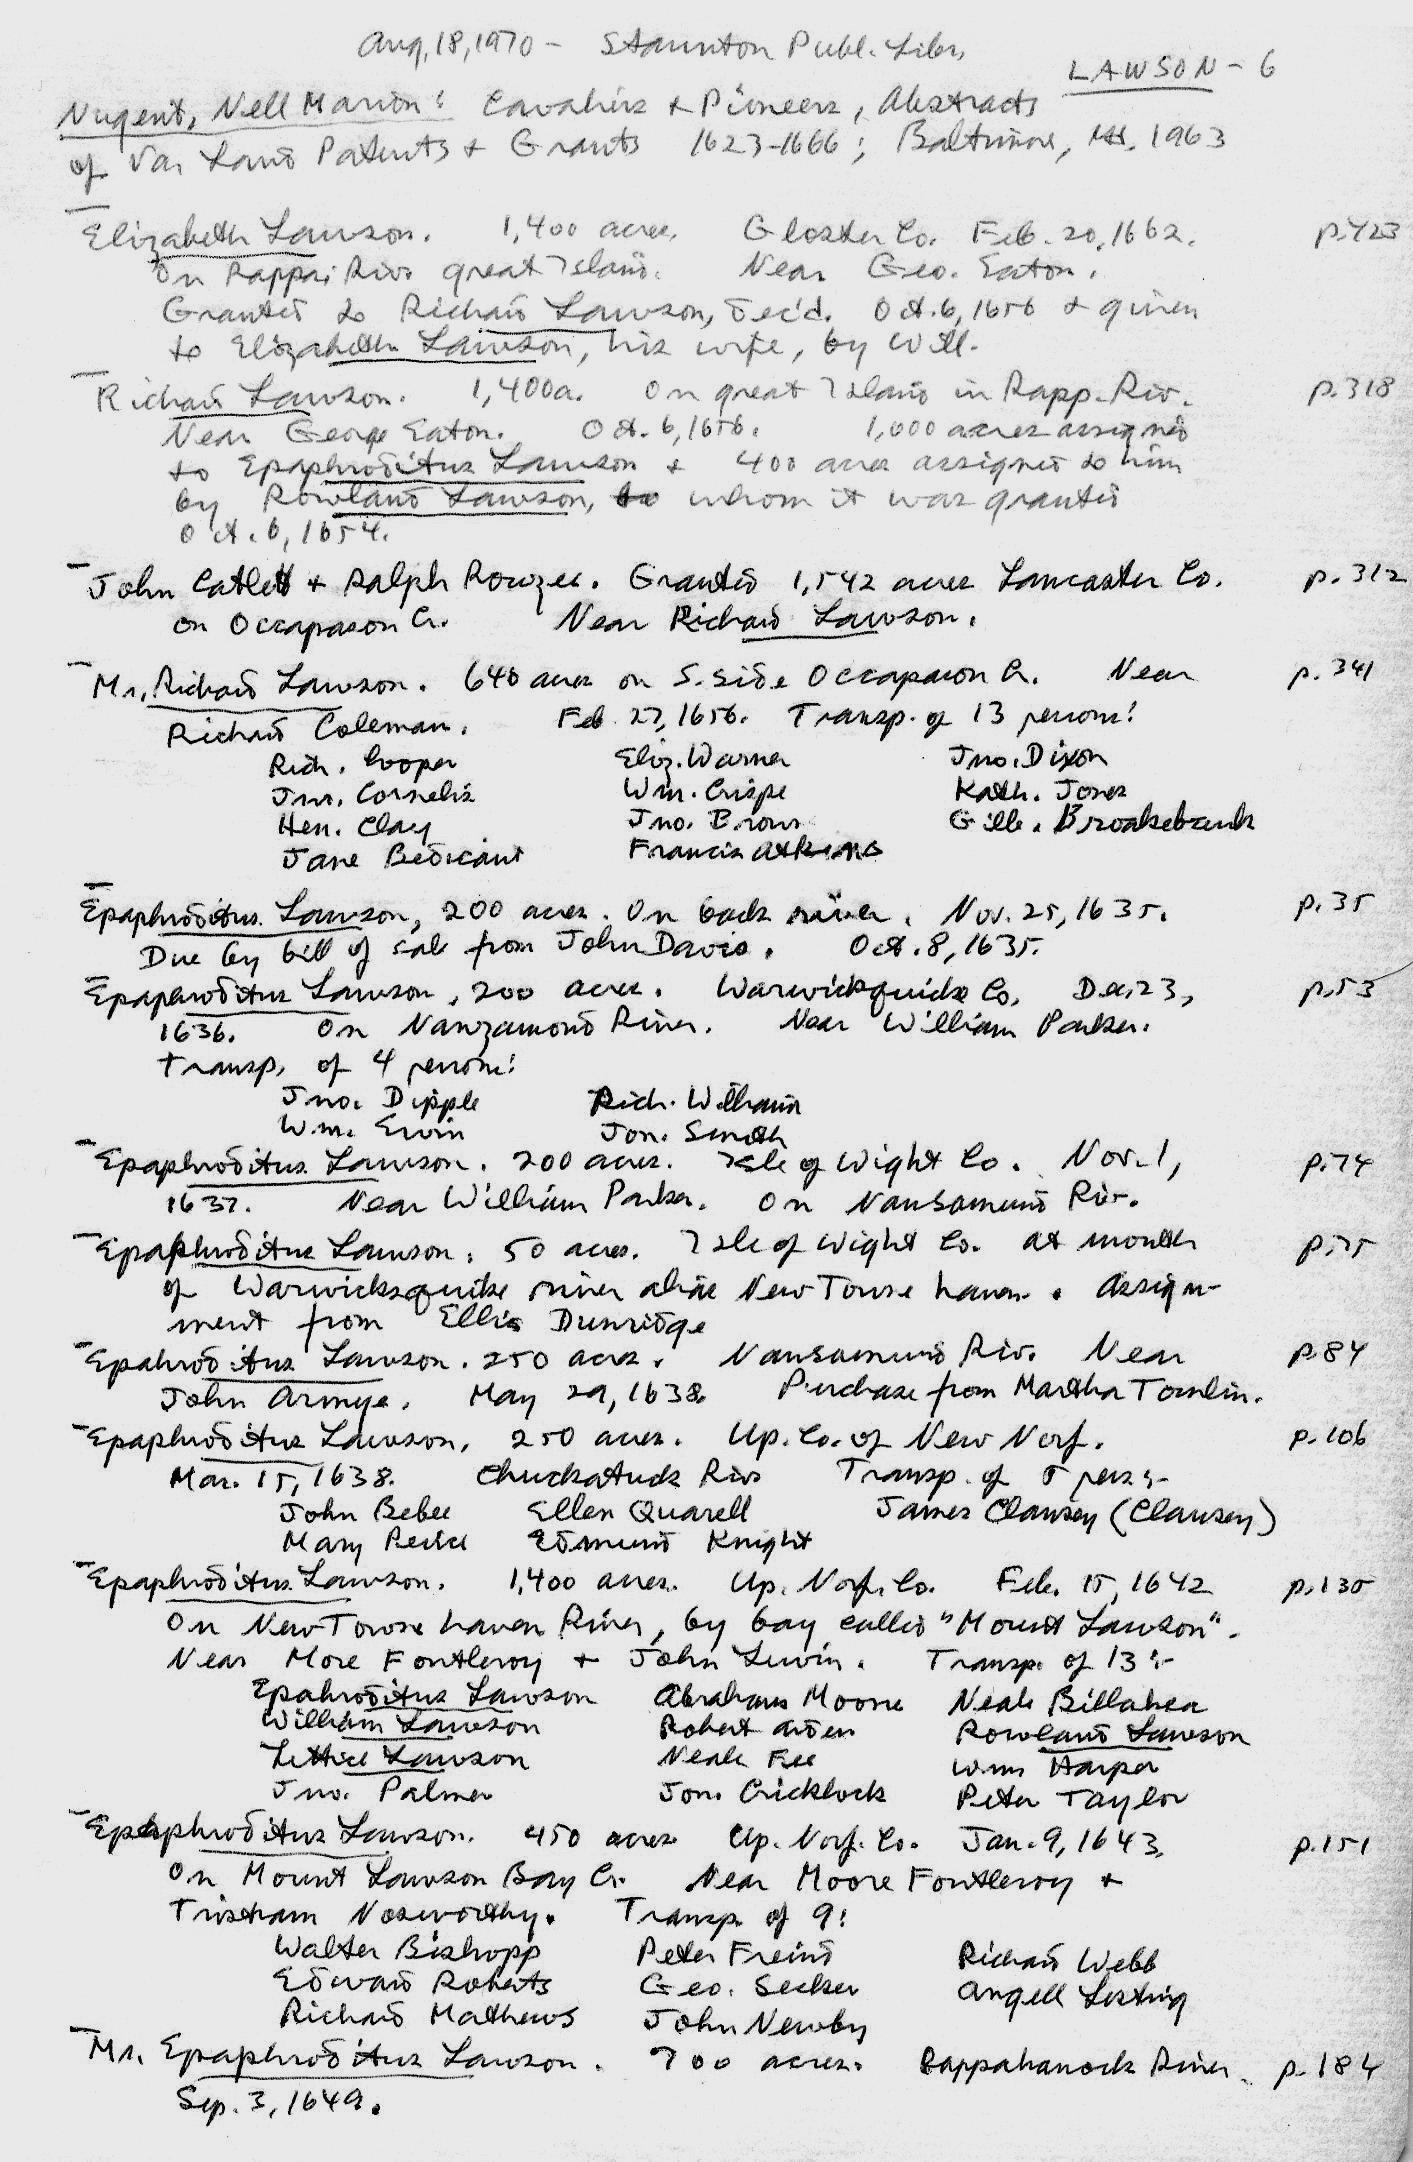 Aug. 18, 1970 - Staunton Publ. Libr.
LAWSON - 6
Nugent, Nell Marion: Cavaliers & Pioneers, Abstracts
of Va. Land Patents & Grants 1623-1666; Baltimore, Md. 1963
Elizabeth Lawson. 1,400 acres. Gloster Co. Feb. 20, 1662. p. 423
On Rappa. Riv. great Island. Near Geo. Eaton.
Granted to Richard Lawson, dec'd. Oct. 6, 1656 & given
to Elizabeth Lawson, his wife, by Will.
Richard Lawson. 1,400 a. On great Island in Rapp. Riv. p. 318
Near George Eaton. Oct. 6, 1656. 1,000 acres assigned
to Epaphroditus Lawson & 400 acres assigned to him
by Rowland Lawson, to whom it was granted
Oct. 6, 1654.
John Catlett & Ralph Rowzee. Granted 1,542 acres Lancaster Co. p. 312
on Occapason Cr. Near Richard Lawson.
Mr. Richard Lawson. 640 acres on S. side Occapason Cr. Near p. 341
Richard Coleman. Feb. 27, 1656. Transp. of 13 persons:
Rich. Cooper Eliz. Warner Jno. Dixon
Jno. Cornelis Wm. Crispe Kath. Jones
Hen. Clay Jno. Brown Gilb. Broakebank
Jane Bedicant Francis Atkins
Epaphroditus Lawson, 200 acres. On back river. Nov. 25, 1635. p. 35
Due by bill of sale from John Davis. Oct. 8, 1635.
Epaphroditus Lawson, 200 acres. Warwicksquicke Co. Dec. 23, p. 53
1636. On Nanzamond River. Near William Parker.
Transp. of 4 persons:
Jno. Dipple Rich. William
Wm. Erwin Jon. Smith
Epaphroditus Lawson. 200 acres. Isle of Wight Co. Nov. 1, p. 74
1637. Near William Parker. On Nansamund Riv.
Epaphroditus Lawson. 50 acres. Isle of Wight Co. at mouth p. 75
of Warwicksquike river alias New Towne haven. Assign-
ment from Ellis Dunridge
Epahroditus Lawson. 250 acres. Nansamund Riv. Near p. 84
John Armye. May 29, 1638. Purchase from Martha Tomlin.
Epaphroditus Lawson. 250 acres. Up. Co. of New Norf. p. 106
Mar. 15, 1638. Chuckatuck Riv. Transp. of 5 pers:-
John Bebee Ellen Quarell James Clansey (Clausey)
Mary Edmund Knight
Epaphroditus Lawson. 1,400 acres. Up. Norf. Co. Feb. 15, 1642 p. 135
On New Towne haven River, by bay called "Mount Lawson".
Near More Fontleroy & John Lewin. Transp. of 13:-
Epahroditus Lawson Abraham Moore Neale Billahea
William Lawson Robert Arden Rowland Lawson
Lettice Lawson Neale Fee Wm. Harper
Jno. Palmer Jon. Cricklock Peter Taylor
Epaphroditus Lawson. 450 acres Up. Norf. Co. Jan. 9, 1643. p. 151
On Mount Lawson Bay Cr. Near Moore Fontleroy &
Tristram Nosworthy. Transp. of 9:
Walter Bishopp Peter Freind Richard Webb
Edward Roberts Geo. Secker Angell
Richard Mathews John Newby
Mr. Epaphroditus Lawson. 700 acres. Rappahanock River. p. 184
Sep. 3, 1649.